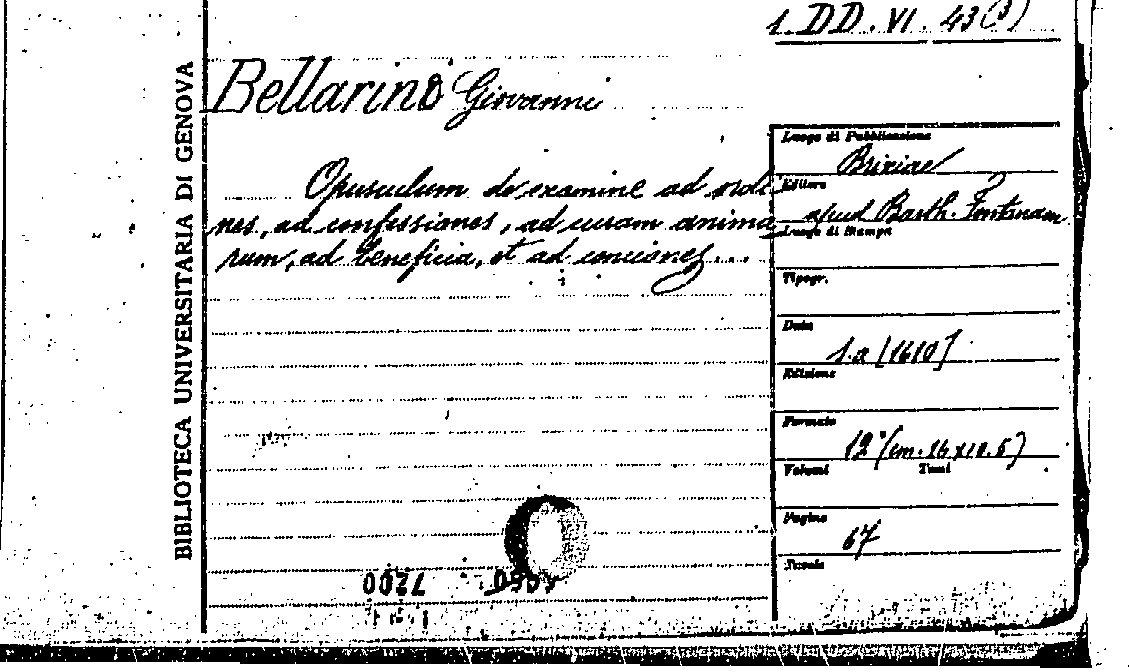 1. DD. VI. 43(3)
BIBLIOTECA UNIVERSITARIA DI GENOVA
Bellarino Giovanni
Opusculum de examine ad ordi-
nes, ad confessiones, ad curam anima-
rum, ad beneficia, et ad conciones...
Luogo di Pubblicazione
Brixiae
Editore
apud Barth. Fontanam
Luogo di Stampa
Tipogr.
Data
s.a [1610]
Edizione
Formato
12° (cm. 16x10.5)
Volumi Tomi
Pagine
67
Tavole
7200